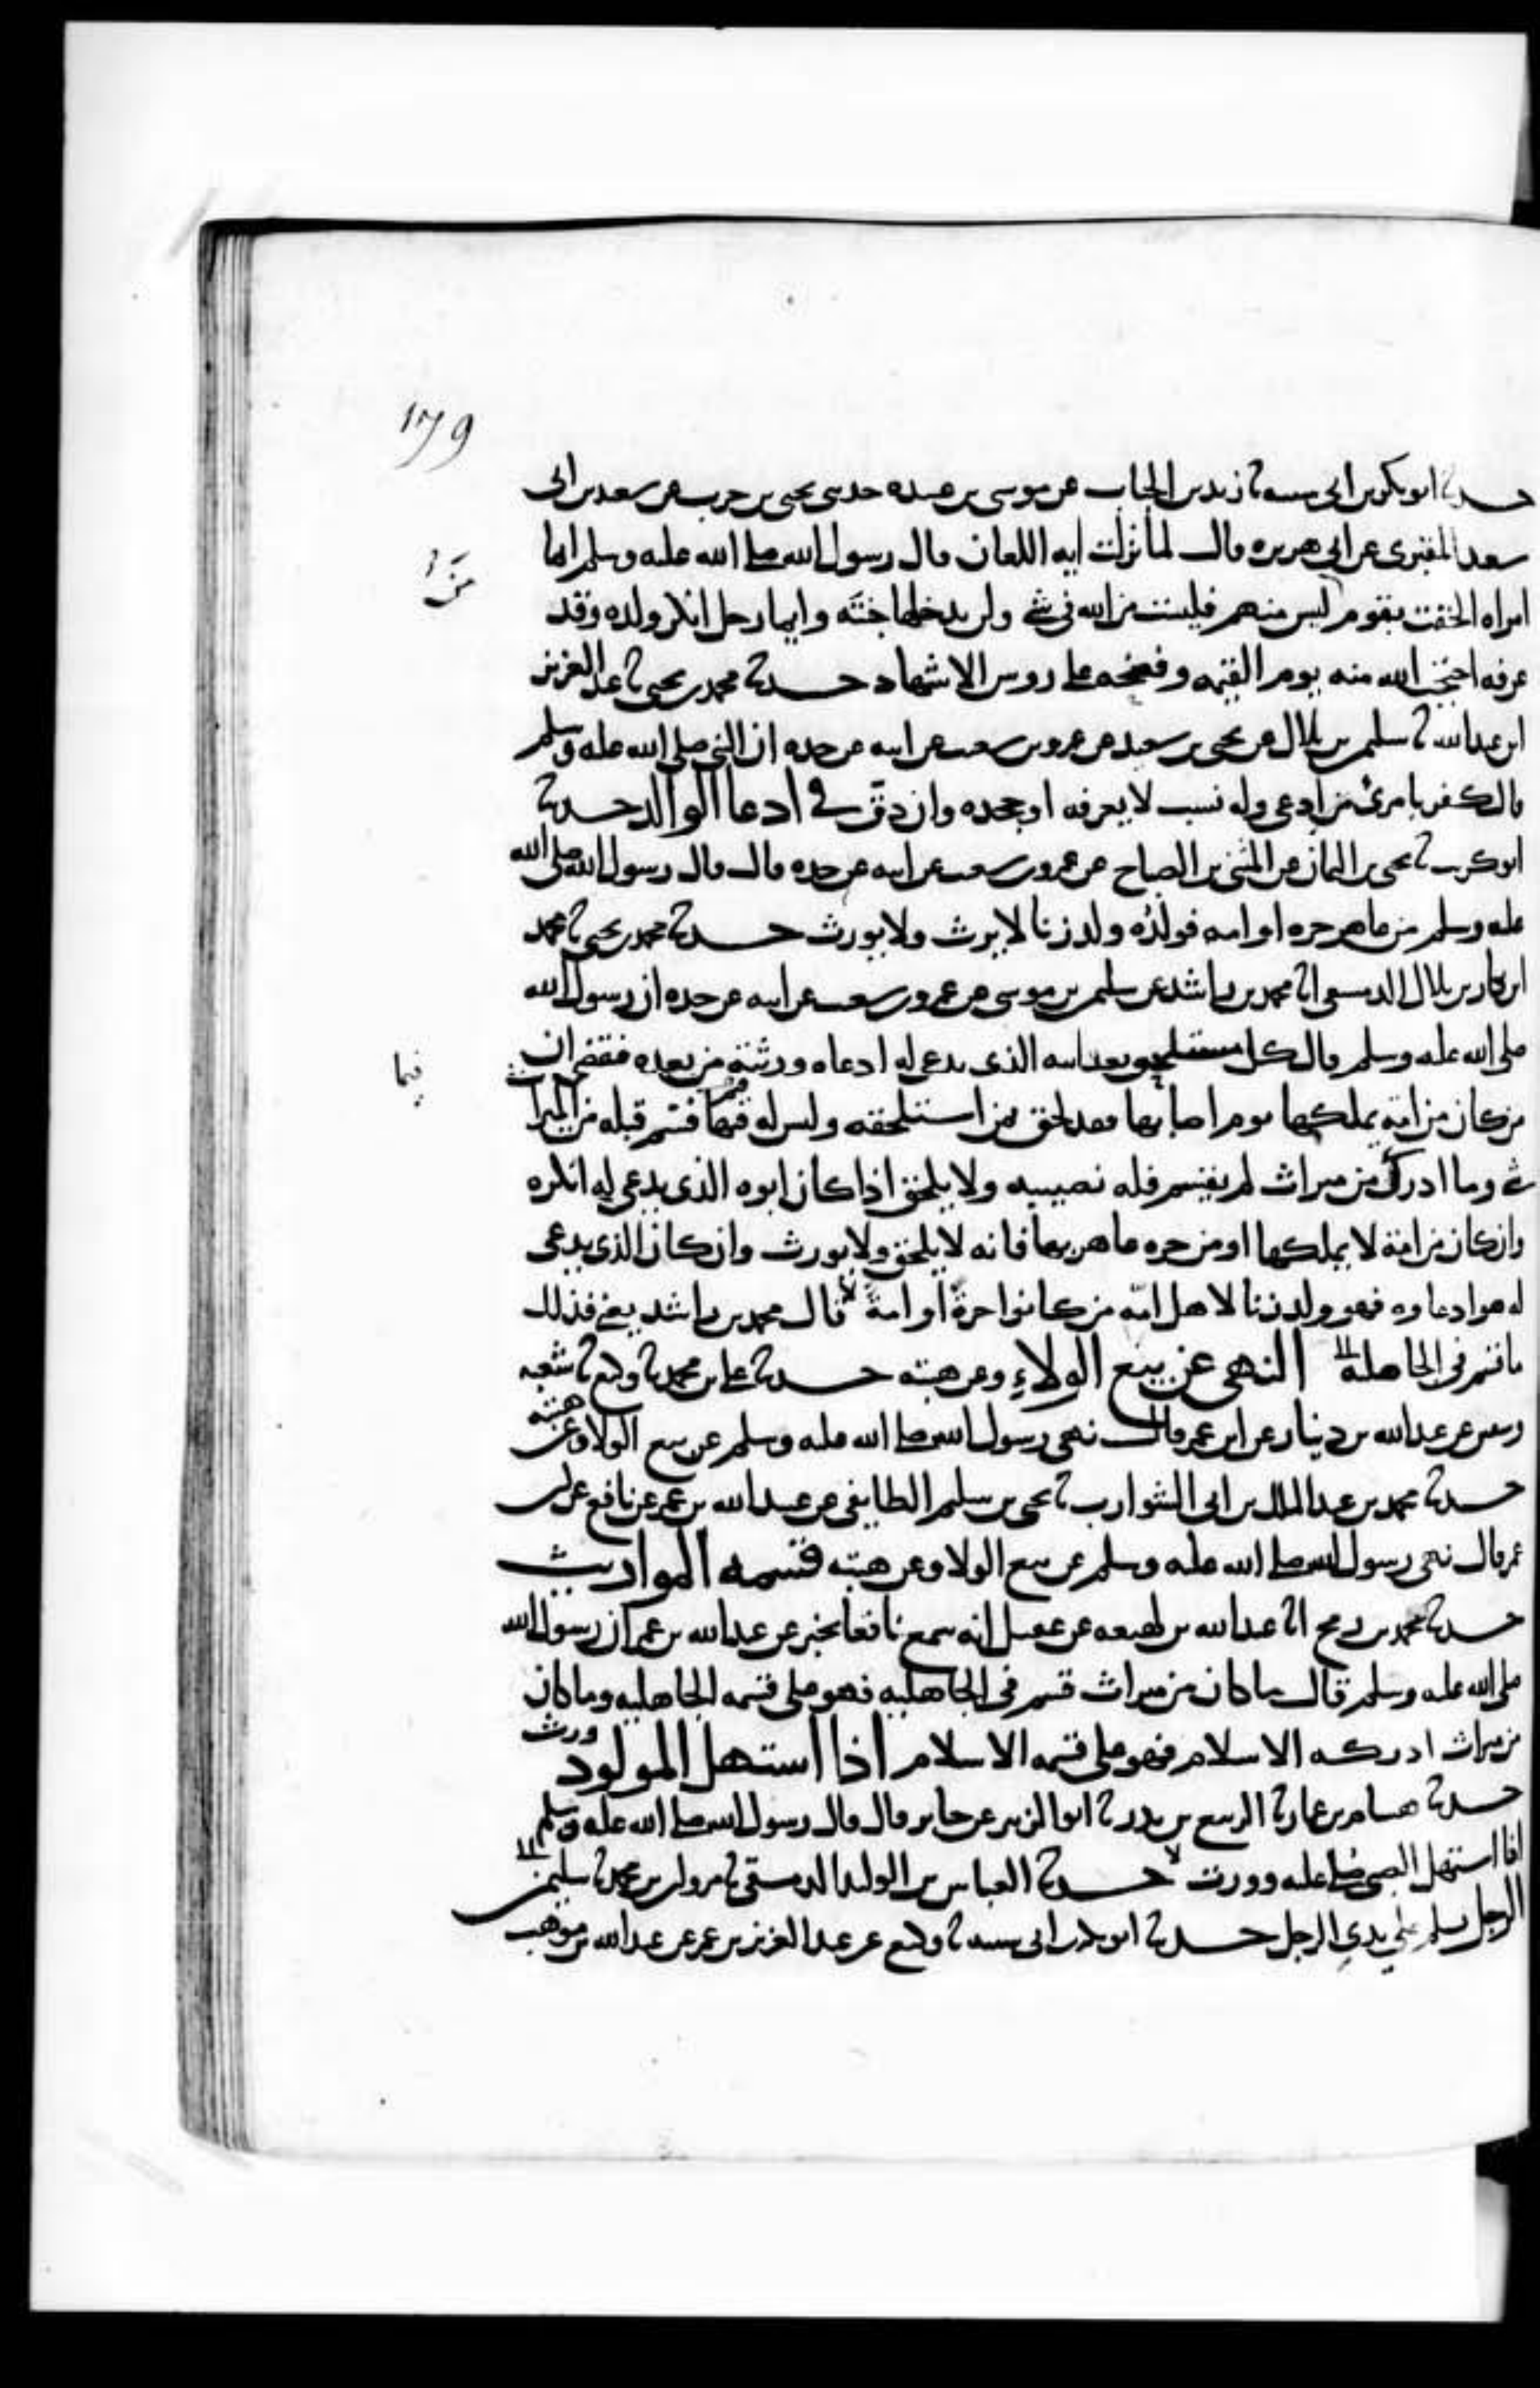 179
حدثنا ابوبكر بن ابي شيبه ثنا زيد بن الحباب عن موسى بن عبيده حدثني يحيى بن حرب عن سعيد بن ابي
سعيد المقبري عن ابي هريره قال لما نزلت ايه اللعان قال رسول الله صلى الله عليه وسلم ايما
امراه الحقت بقوم ليس منهم فليست من الله في شي ولن يدخلها جنته وايما رجل انكر ولده وقد
من
عرفه احتجب الله منه يوم القيمه وفضحه على روس الاشهاد حدثنا محمد بن يحيى ثنا عبد العزيز
ابن عبد الله ثنا سليمن بن بلال عن يحيى بن سعيد عن عمرو بن شعيب عن ابيه عن جده ان النبي صلى الله عليه وسلم
قال كفر بامرئ من ادعى وله نسب لا يعرفه او جحده وان دق في ادعا الوالد حدثنا
ابو كريب ثنا يحيى بن اليمان عن المثنى بن الصباح عن عمرو بن شعيب عن ابيه عن جده قال قال رسول الله صلى الله
عليه وسلم من عاهر حره او امه فولده ولد زنا لا يرث ولا يورث حدثنا محمد بن يحيى ثنا محمد
ابن بكار بن بلال الدمشقي انا محمد بن راشد عن سليمن بن موسى عن عمرو بن شعيب عن ابيه عن جده ان رسول الله
صلى الله عليه وسلم قال كل مستلحق بعد ابيه الذي يدعى له ادعاه ورثته من بعده فقضى ان
فيما
من كان من امة يملكها يوم اصابها فقد لحق بمن استلحقه وليس له فيما قسم قبله من الميراث
شي وما ادرك من ميراث لم يقسم فله نصيبه ولا يلحق اذا كان ابوه الذي يدعى له انكره
وان كان من امة لا يملكها او من حره عاهر بها فانه لا يلحق ولا يورث وان كان الذي يدعى
له هو ادعاه فهو ولد زنا لاهل امه من كانوا حرة او امة قال محمد بن راشد يعني فذلك
ما قسم في الجاهليه النهي عن بيع الولاء وعن هبته حدثنا علي بن محمد ثنا وكيع ثنا شعبه
وسفين عن عبد الله بن دينار عن ابن عمر قال نهى رسول الله صلى الله عليه وسلم عن بيع الولا وعن هبته
حدثنا محمد بن عبد الملك بن ابي الشوارب ثنا يحيى بن سليم الطايفي عن عبيد الله بن عمر عن نافع عن ابن
عمر قال نهى رسول الله صلى الله عليه وسلم عن بيع الولا وعن هبته قسمه المواريث
حدثنا محمد بن رمح انا عبد الله بن لهيعه عن عقيل انه سمع نافعا يخبر عن عبد الله بن عمر ان رسول الله
صلى الله عليه وسلم قال ما كان من ميراث قسم في الجاهليه فهو على قسمه الجاهليه وما كان
من ميراث ادركه الاسلام فهو على قسمه الاسلام اذا استهل المولود ورث
حدثنا هشام بن عمار ثنا الربيع بن بدر ثنا ابو الزبير عن جابر قال قال رسول الله صلى الله عليه وسلم
اذا استهل الصبي صلي عليه وورث حدثنا العباس بن الوليد الدمشقي ثنا مروان بن محمد ثنا سليمن
الرجل يسلم على يدي الرجل حدثنا ابو بكر بن ابي شيبه ثنا وكيع عن عبد العزيز بن عمر عن عبد الله بن موهب